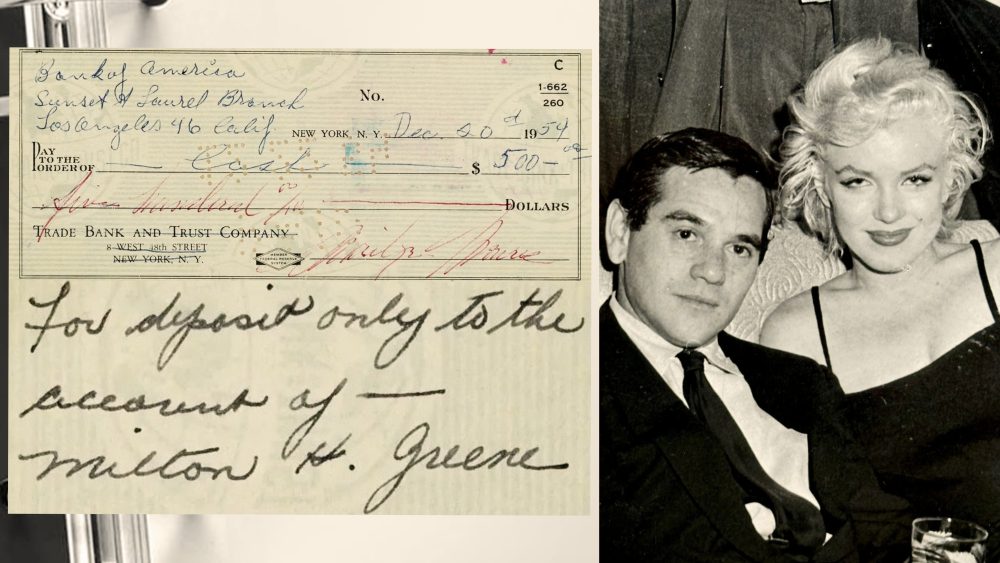 Bank of America
C
Sunset & Laurel Branch
No.
1-662
260
Los Angeles 46 Calif.
NEW YORK, N. Y. Dec. 20 1954
PAY TO THE ORDER OF Cash $ 500 00
Five hundred DOLLARS
TRADE BANK AND TRUST COMPANY
8 WEST 48th STREET
NEW YORK, N. Y.
MEMBER FEDERAL RESERVE SYSTEM
Marilyn Monroe
For deposit only to the
account of —
Milton H. Greene